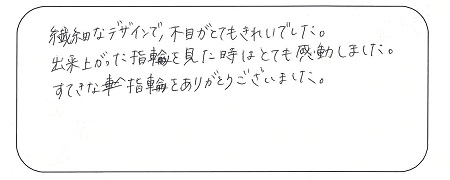 繊細なデザインで、木目がとてもきれいでした。
出来上がった指輪を見た時はとても感動しました。
すてきな指輪をありがとうございました。